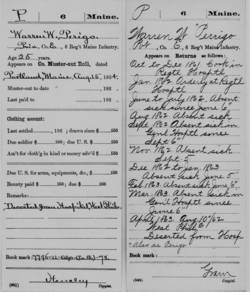 P | 6 | Maine.
Warren W. Perigo.
Pri., Co. C, 6 Reg't Maine Infantry.
Age 25 years.
Appears on Co. Muster-out Roll, dated
Portland Maine, Aug 15, 1864.
Muster-out to date 186 .
Last paid to 186 .
Clothing account:
Last settled 186 ; drawn since $ 100
Due soldier $ 100; due U. S. $ 100
Am't for cloth'g in kind or money adv'd $ 100
Due U. S. for arms, equipments, &c., $ 100
Bounty paid $ 100; due $ 100
Remarks:
Deserted from Hosp'l
Book mark:
Copyist.
P | 6 | Maine.
Warren W. Perrigo
Pvt, Co. C, 6 Reg't Maine Infantry.
Appears on Returns as follows:
Oct to Dec 1861 Cook in
Regtl Hosptl
Jan. 1862 Orderly at Regtl
Hosptl
June to July 1862 Absent
sick since June
Aug 1862 Absent sick
Sept. 1862 Absent sick in
Genl Hosptl since
Sept 6
Nov. 1862 Absent sick
Sept. 5
Dec 1862 to Jan, 1863
Absent sick June 5
Feb. 1863 Absent sick June 5
Mar. 1863 Absent sick in
Genl Hosptl since
June 5
April 1863 Aug 10/62
West Phila
Deserted from Hosp
Book mark:
Copyist.